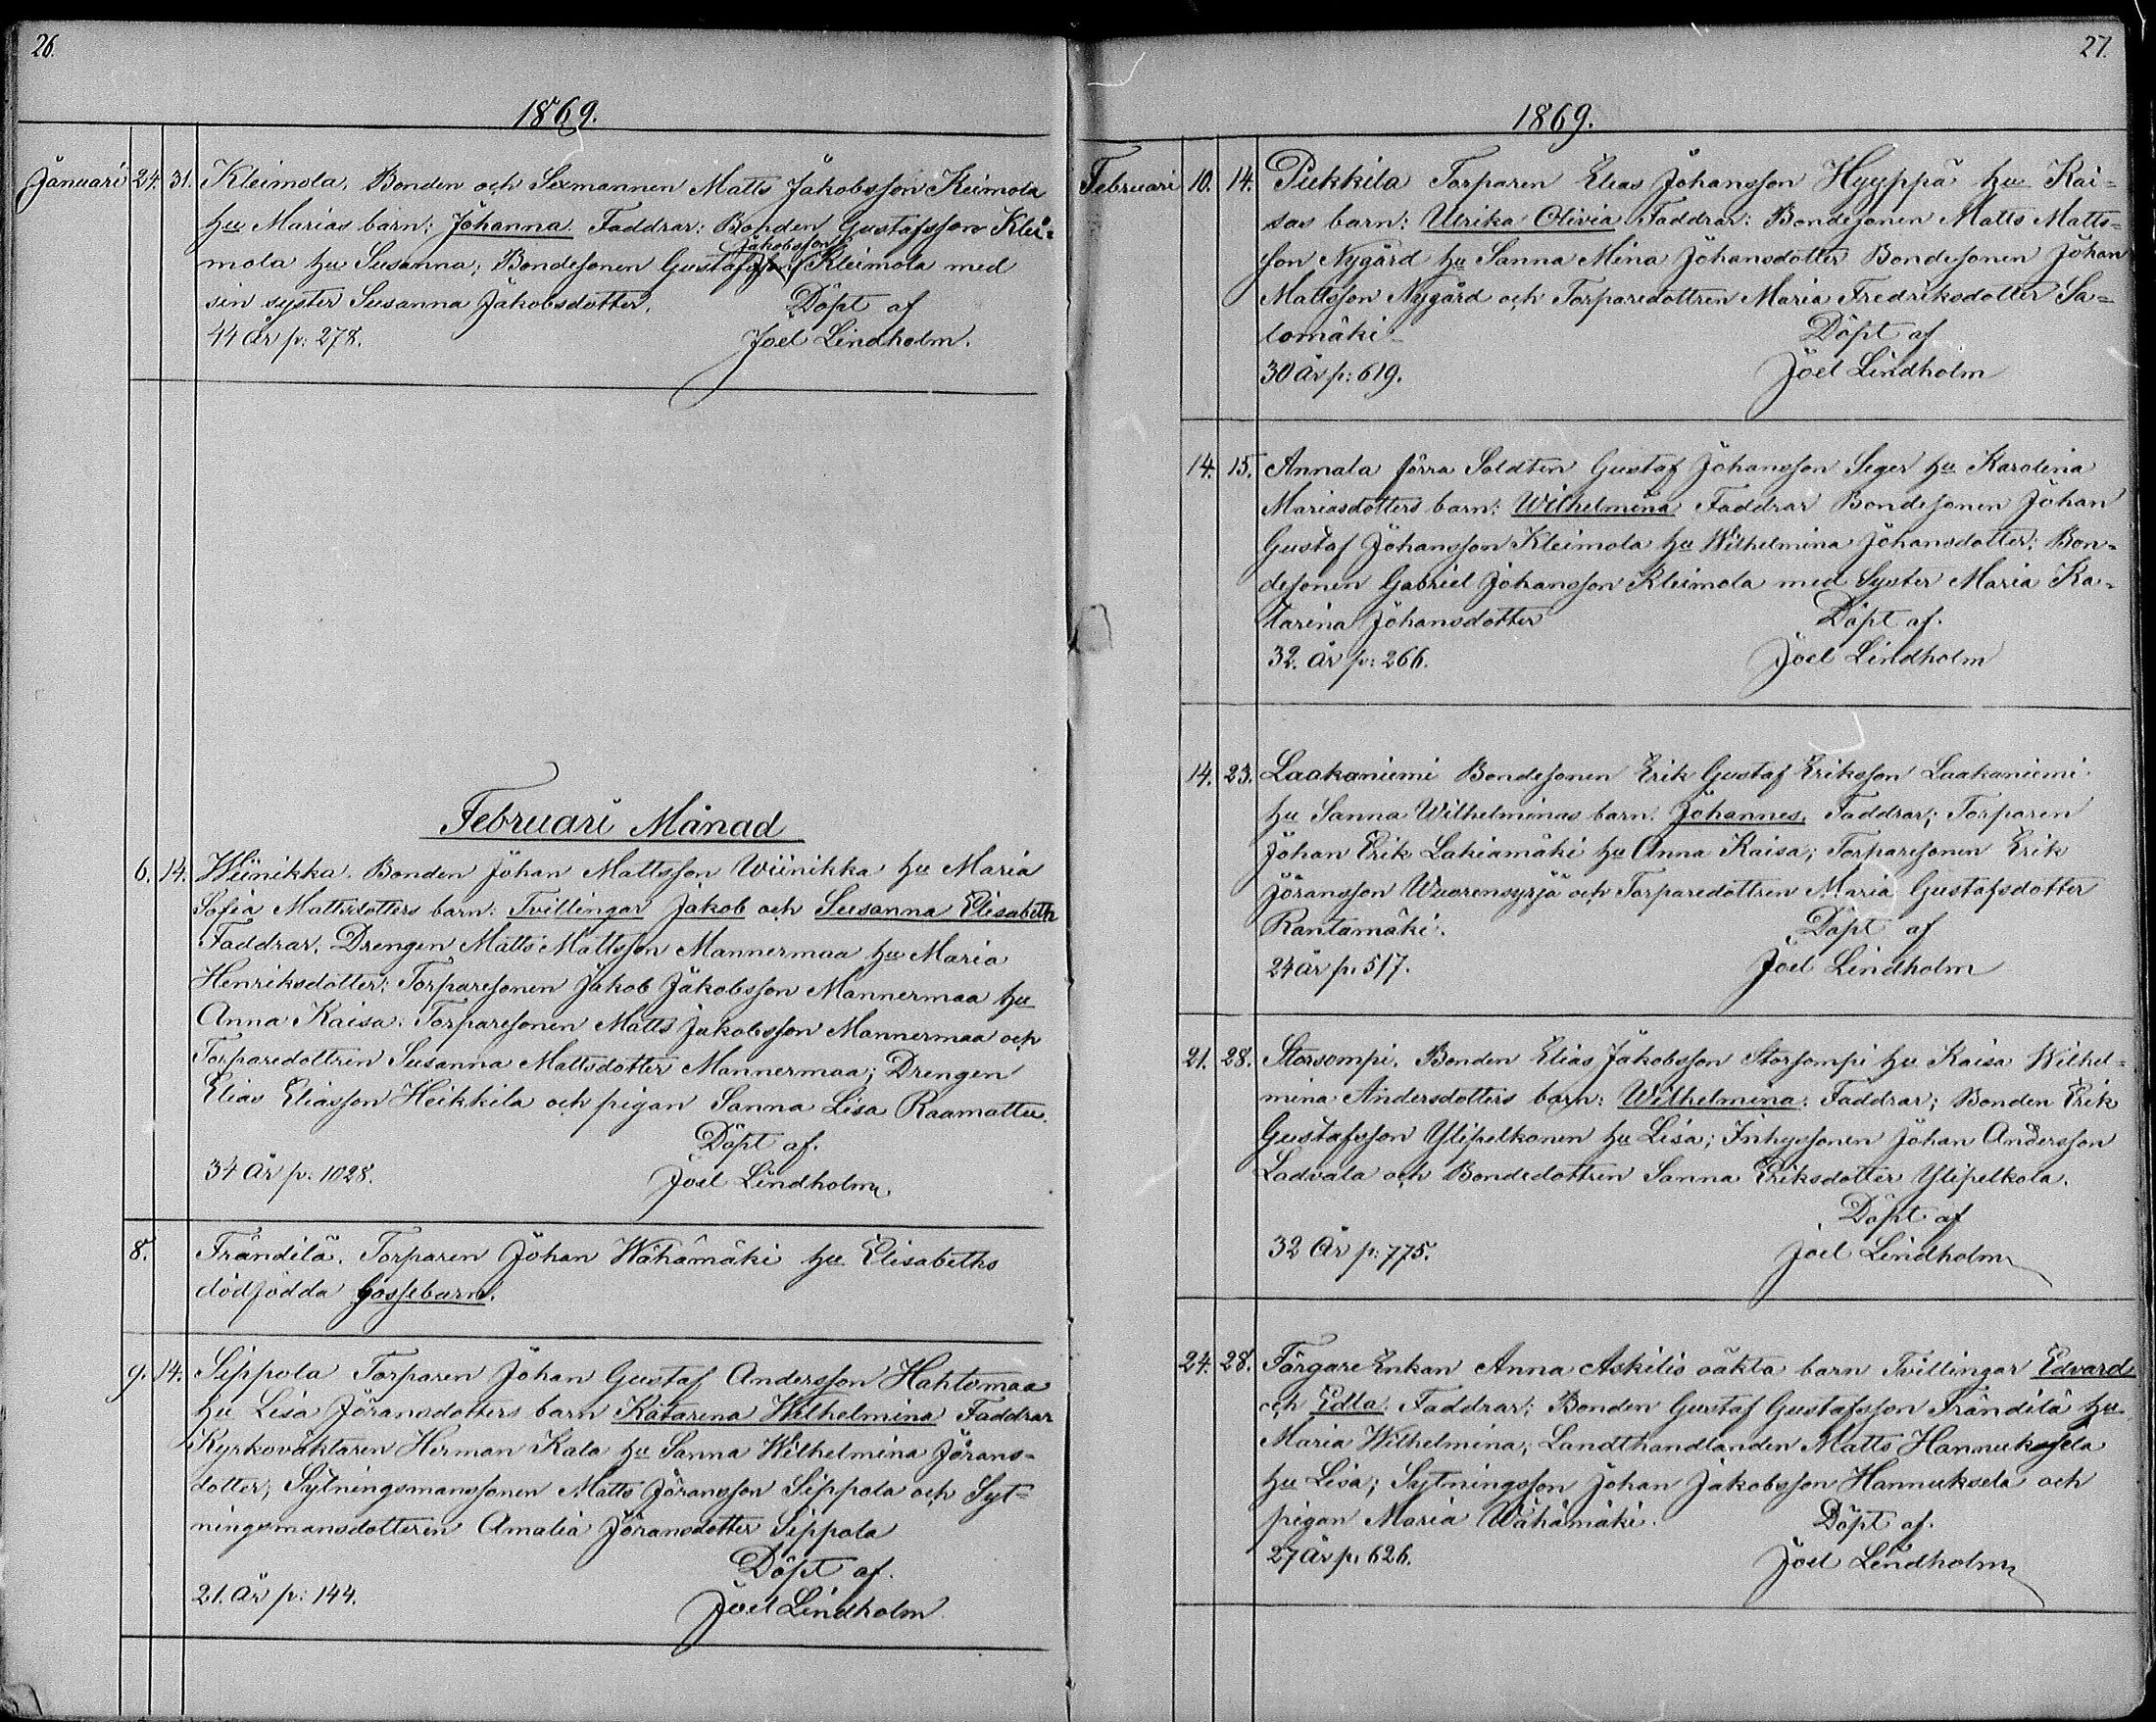 26.
1869.
Januari 24. 31. Kleimola, Bonden och Sexmannen Matts Jakobsson Kleimola
hu Marias barn: Johanna. Faddrar: Bonden Gustafsson Klei-
Jakobsson
mola hu Susanna; Bondesonen Gustaf Kleimola med
sin syster Susanna Jakobsdotter. Döpt af
44 år p: 278. Joel Lindholm.
Februari Månad
6. 14. Wiinikka. Bonden Johan Mattsson Wiinikka hu Maria
Sofia Mattsdotters barn: Tvillingar Jakob och Susanna Elisabeth
Faddrar: Drengen Matts Mattsson Mannermaa hu Maria
Henriksdotter: Torparesonen Jakob Jakobsson Mannermaa hu
Anna Kaisa: Torparesonen Matts Jakobsson Mannermaa och
Torparedottren Susanna Mattsdotter Mannermaa; Drengen
Elias Eliasson Heikkila och pigan Sanna Lisa Raamattu.
Döpt af.
34 år p. 1028. Joel Lindholm
8. Frändilä. Torparen Johan Wähämäki hu Elisabeths
dödfödda Gossebarn.
9. 14. Sippola Torparen Johan Gustaf Andersson Hahtomaa
hu Lisa Jöransdotters barn Katarina Wilhelmina Faddrar
Kyrkováktaren Herman Kala hu Sanna Wilhelmina Jörans-
dotter; Sytningsmanssonen Matts Jöransson Sippola och Syt-
ningsmansdotteren Amalia Jöransdotter Sippola
Döpt af.
21. år p: 144. Joel Lindholm
27.
1869.
Februari 10. 14. Pukkila Torparen Elias Johansson Hyyppä hu Kai-
sas barn: Ulrika Olivia. Faddrar: Bondesonen Matts Matts-
son Nygård hu Sanna Mina Johansdotter Bondesonen Johan
Mattsson Nygård och Torparedottren Maria Fredriksdotter Sa-
lomäki. Döpt af
30 år p: 619. Joel Lindholm
14. 15. Annala förra Soldten Gustaf Johansson Seger hu Karolina
Mariasdotters barn: Wilhelmina Faddrar Bondesonen Johan
Gustaf Johansson Kleimola hu Wilhelmina Johansdotter: Bon-
desonen Gabriel Johansson Kleimola med Syster Maria Ka-
tarina Johansdotter Döpt af.
32. år p: 266. Joel Lindholm
14. 23. Laakaniemi Bondesonen Erik Gustaf Eriksson Laakaniemi
hu Sanna Wilhelminas barn. Johannes. Faddrar; Torparen
Johan Erik Lakiamäki hu Anna Kaisa; Torparesonen Erik
Jöransson Wuorensyrjä och Torparedottren Maria Gustafsdotter
Rantamäki. Döpt af
24 år p. 517. Joel Lindholm
21. 28. Storsompi. Bonden Elias Jakobsson Storsompi hu Kaisa Wilhel-
mina Andersdotters barn: Wilhelmina. Faddrar; Bonden Erik
Gustafsson Ylipelkonen hu Lisa; Inhyssonen Johan Andersson
Ladvala och Bondedottren Sanna Eriksdotter Ylipelkola.
Döpt af
32 år p: 775. Joel Lindholm
24. 28. Färgare Enkan Anna Askilis oäkta barn Tvillingar Edvard
och Edla. Faddrar; Bonden Gustaf Gustafsson Frändilä hu
Maria Wilhelmina; Landthandlanden Matts Hannuksela
hu Lisa; Sytningsson Johan Jakobsson Hannuksela och
pigan Maria Wähämäki. Döpt af.
27 år p. 626. Joel Lindholm